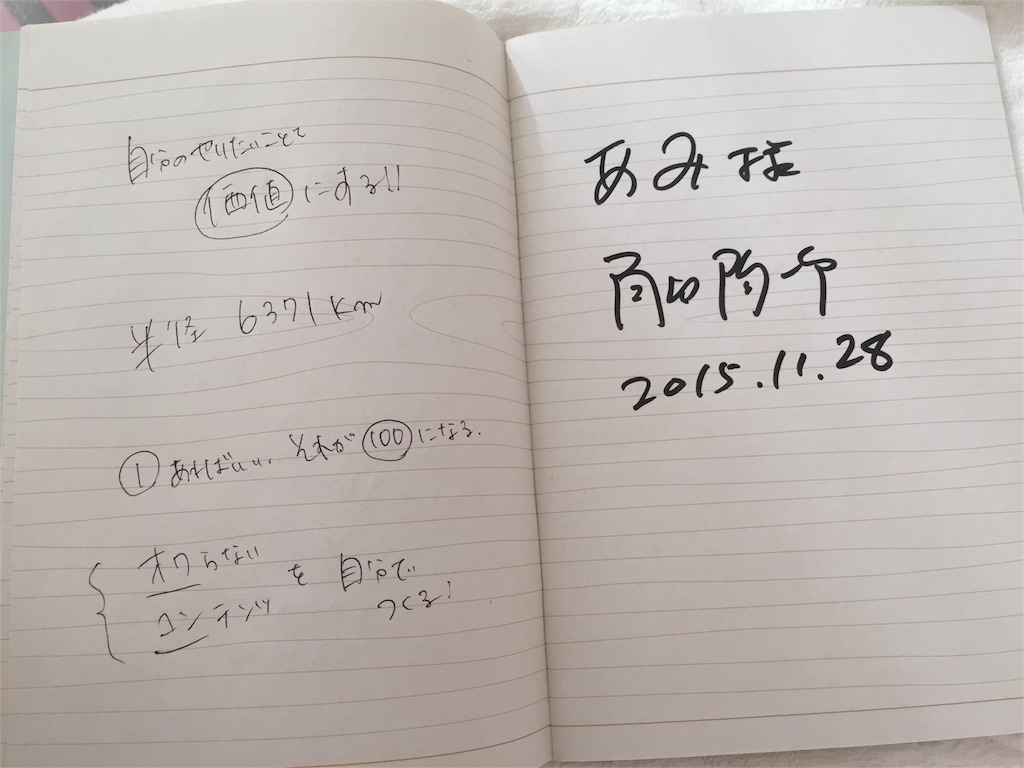 自分のやりたいことを
価値にする!!
半径 6371km
①あればいい、それが100になる.
オワらない
コンテンツ
を 自分で
つくる!
あみ様
2015.11.28